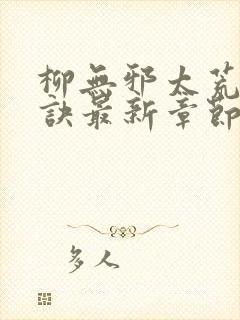 柳無邪太荒
訣最新章節
多人